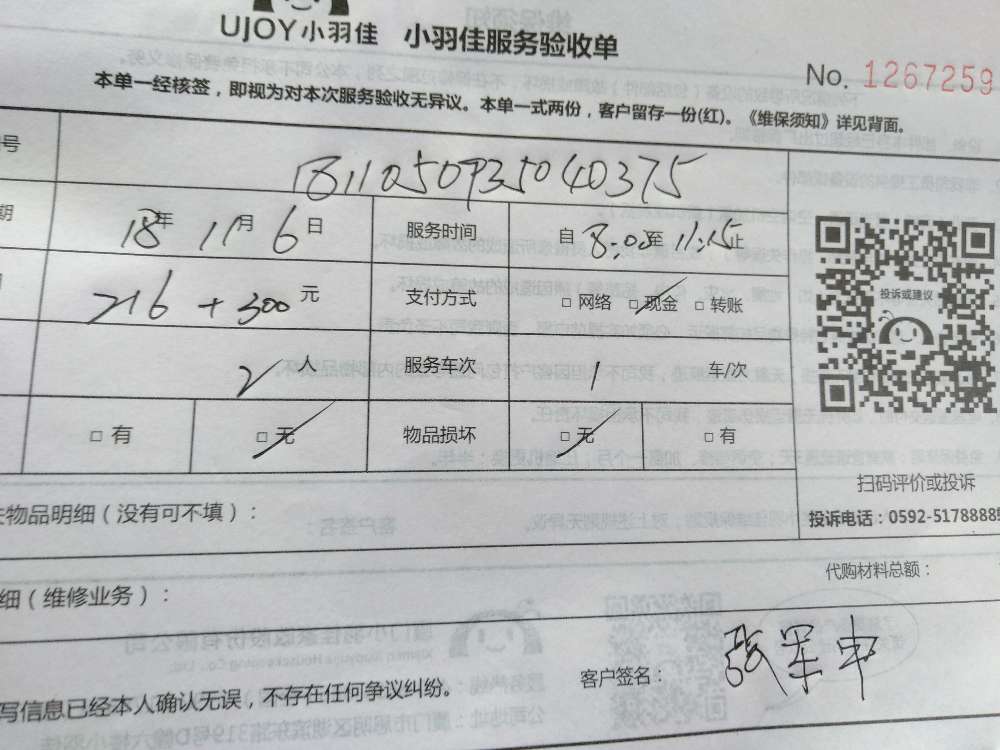 UJOY小羽佳 小羽佳服务验收单
No. 1267259
本单一经核签，即视为对本次服务验收无异议。本单一式两份，客户留存一份(红)。《维保须知》详见背面。
号 1811050935040375
期 18年 11月 6日 服务时间 自 8:00至 11:15止
216 + 300 元 支付方式 □ 网络 □ 现金 □ 转账
2 人 服务车次 1 车/次
□ 有 □ 无 物品损坏 □ 无 □ 有
投诉或建议
扫码评价或投诉
投诉电话：0592-5178888
物品明细（没有可不填）：
代购材料总额：
细（维修业务）：
写信息已经本人确认无误，不存在任何争议纠纷。
客户签名： 张军申